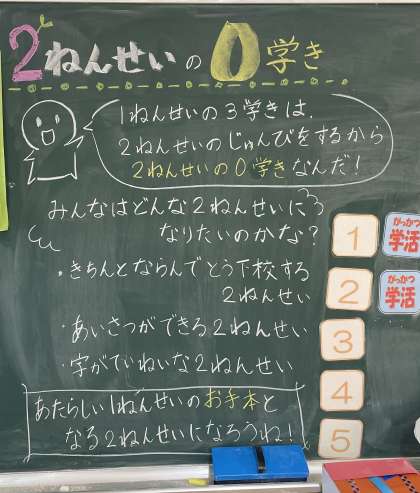 2ねんせいの0学き
1ねんせいの3学きは、
2ねんせいのじゅんびをするから
2ねんせいの0学きなんだ!
みんなはどんな2ねんせいに
なりたいのかな?
・きちんとならんでとう下校する
2ねんせい
・あいさつができる2ねんせい
・字がていねいな2ねんせい
あたらしい1ねんせいのお手本と
なる2ねんせいになろうね!
1
がっかつ
学活
2
がっかつ
学活
3
4
5